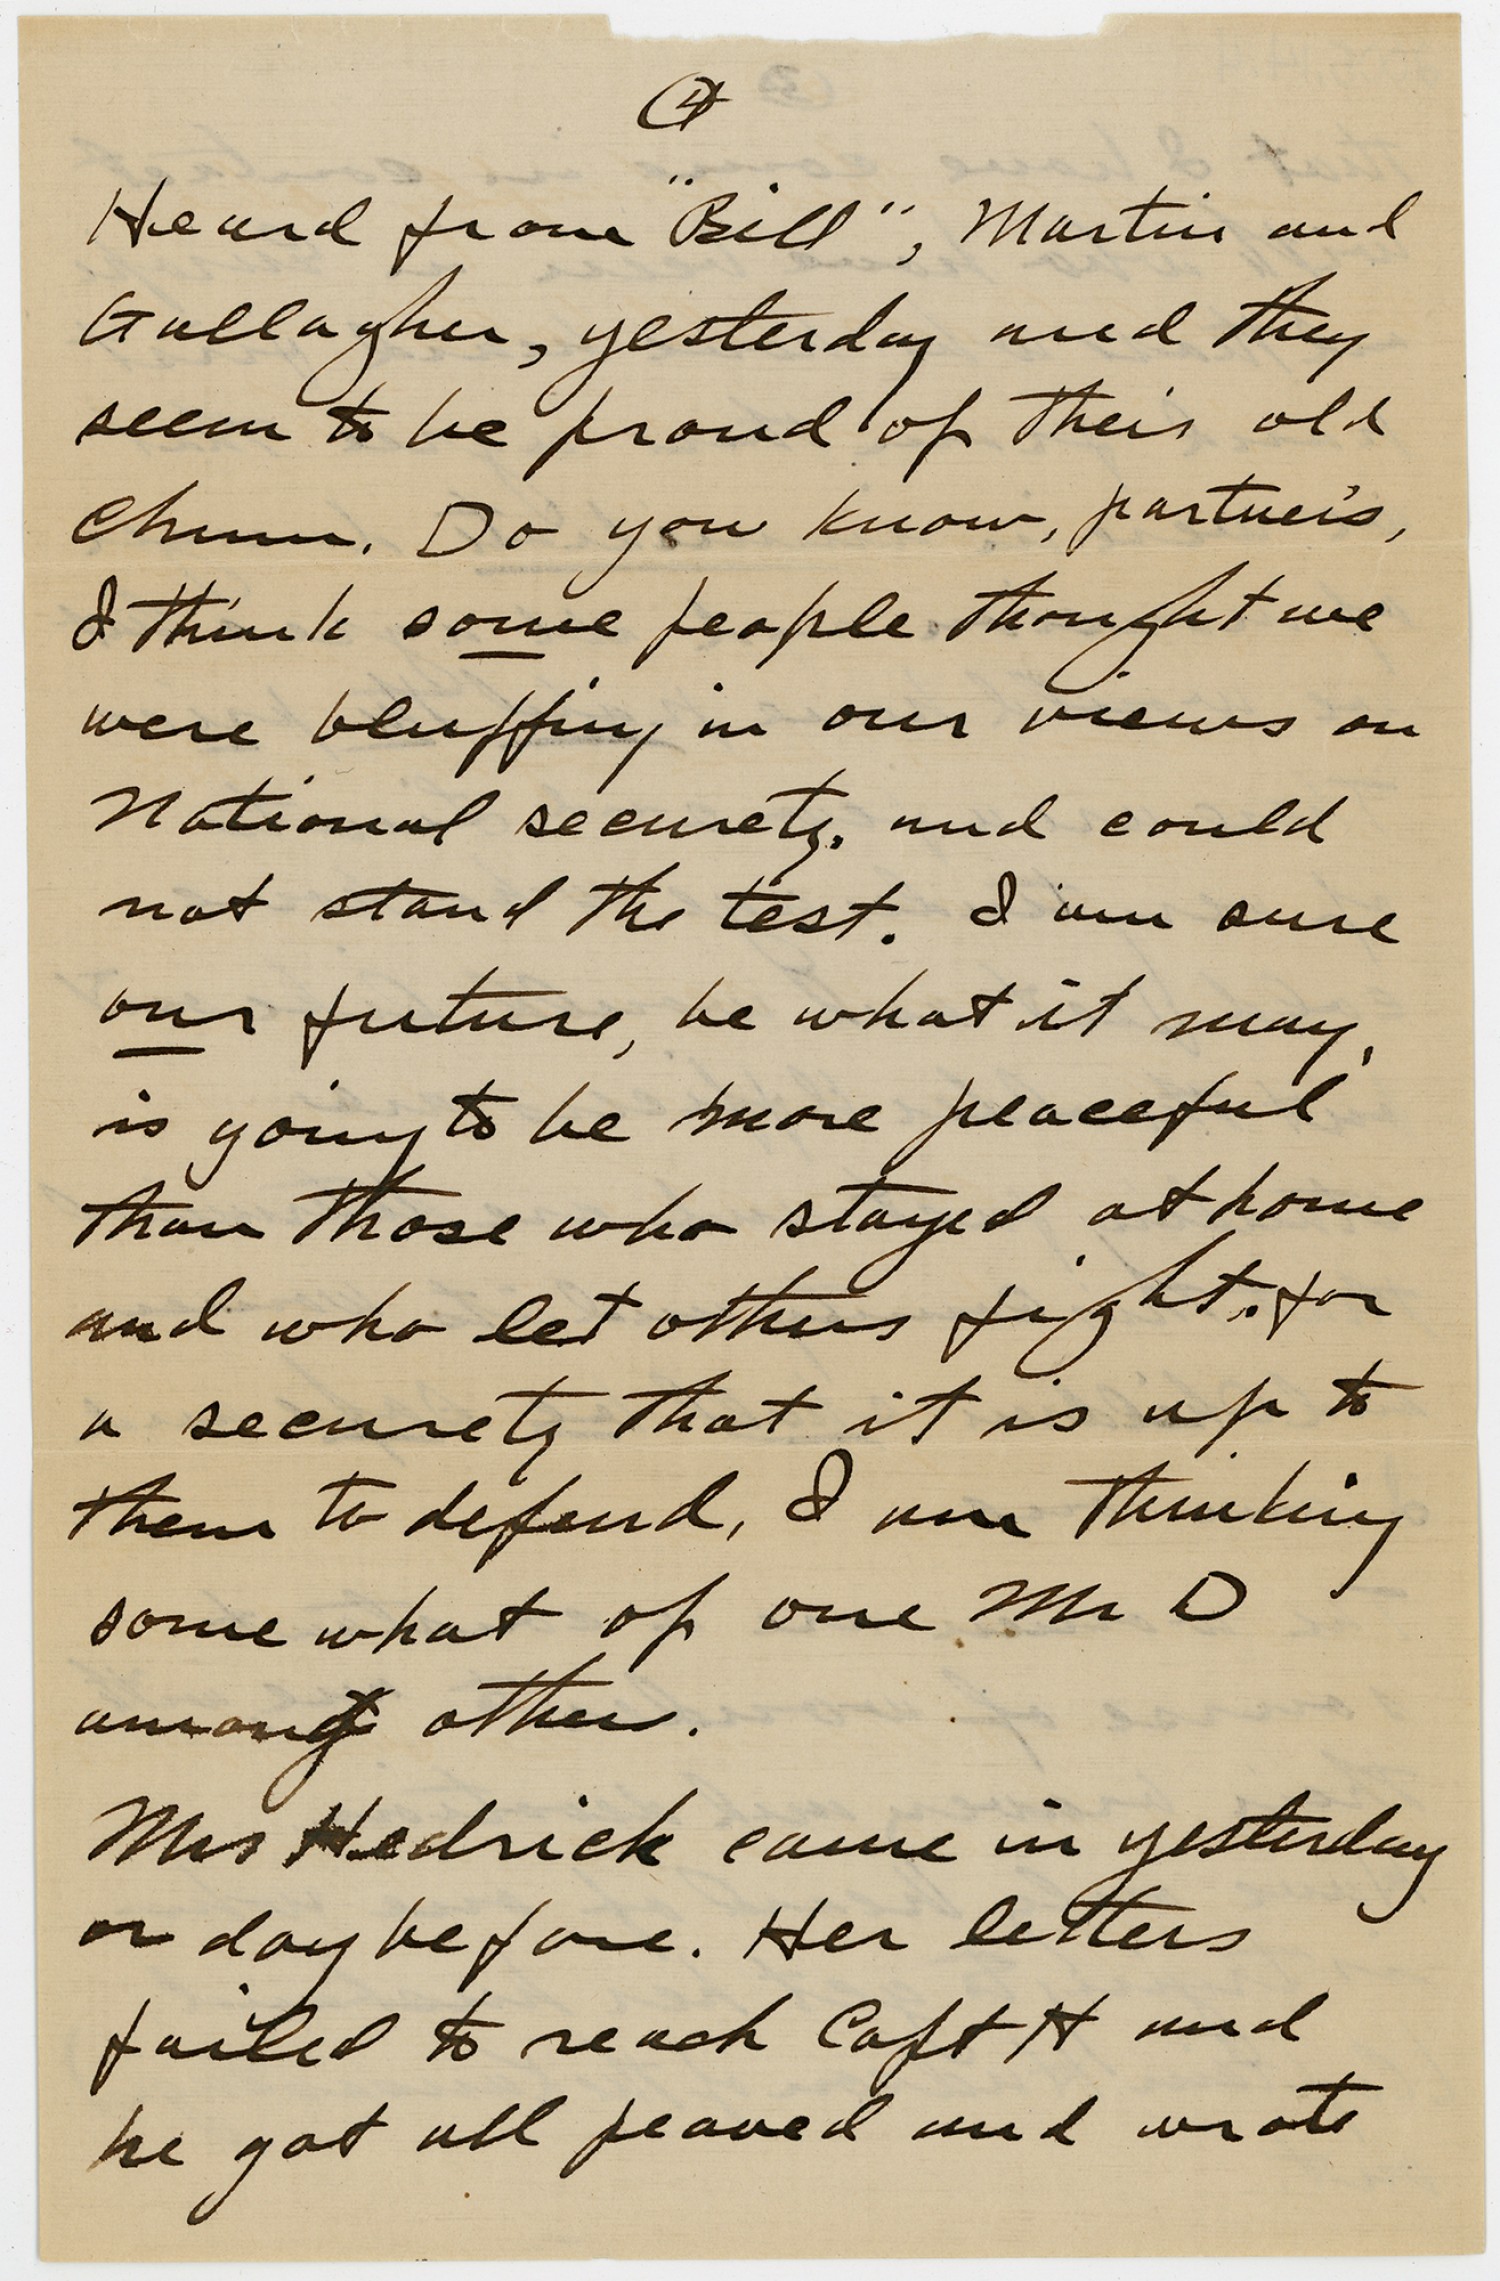 ④
Heard from "Bill", Martin and
Gallagher, yesterday and they
seem to be proud of their old
Chum. Do you know, partner's,
I think some people thought we
were bluffing in our views on
National securety. and could
not stand the test. I am sure
our future, be what it may,
is going to be more peaceful
than those who stayed at home
and who let others fight. for
a securety that it is up to
them to defend, I am thinking
some what of one Mr D
among others.
Mrs Hedrick came in yesterday
or day before. Her letters
failed to reach Capt H and
he got all peaved and wrote